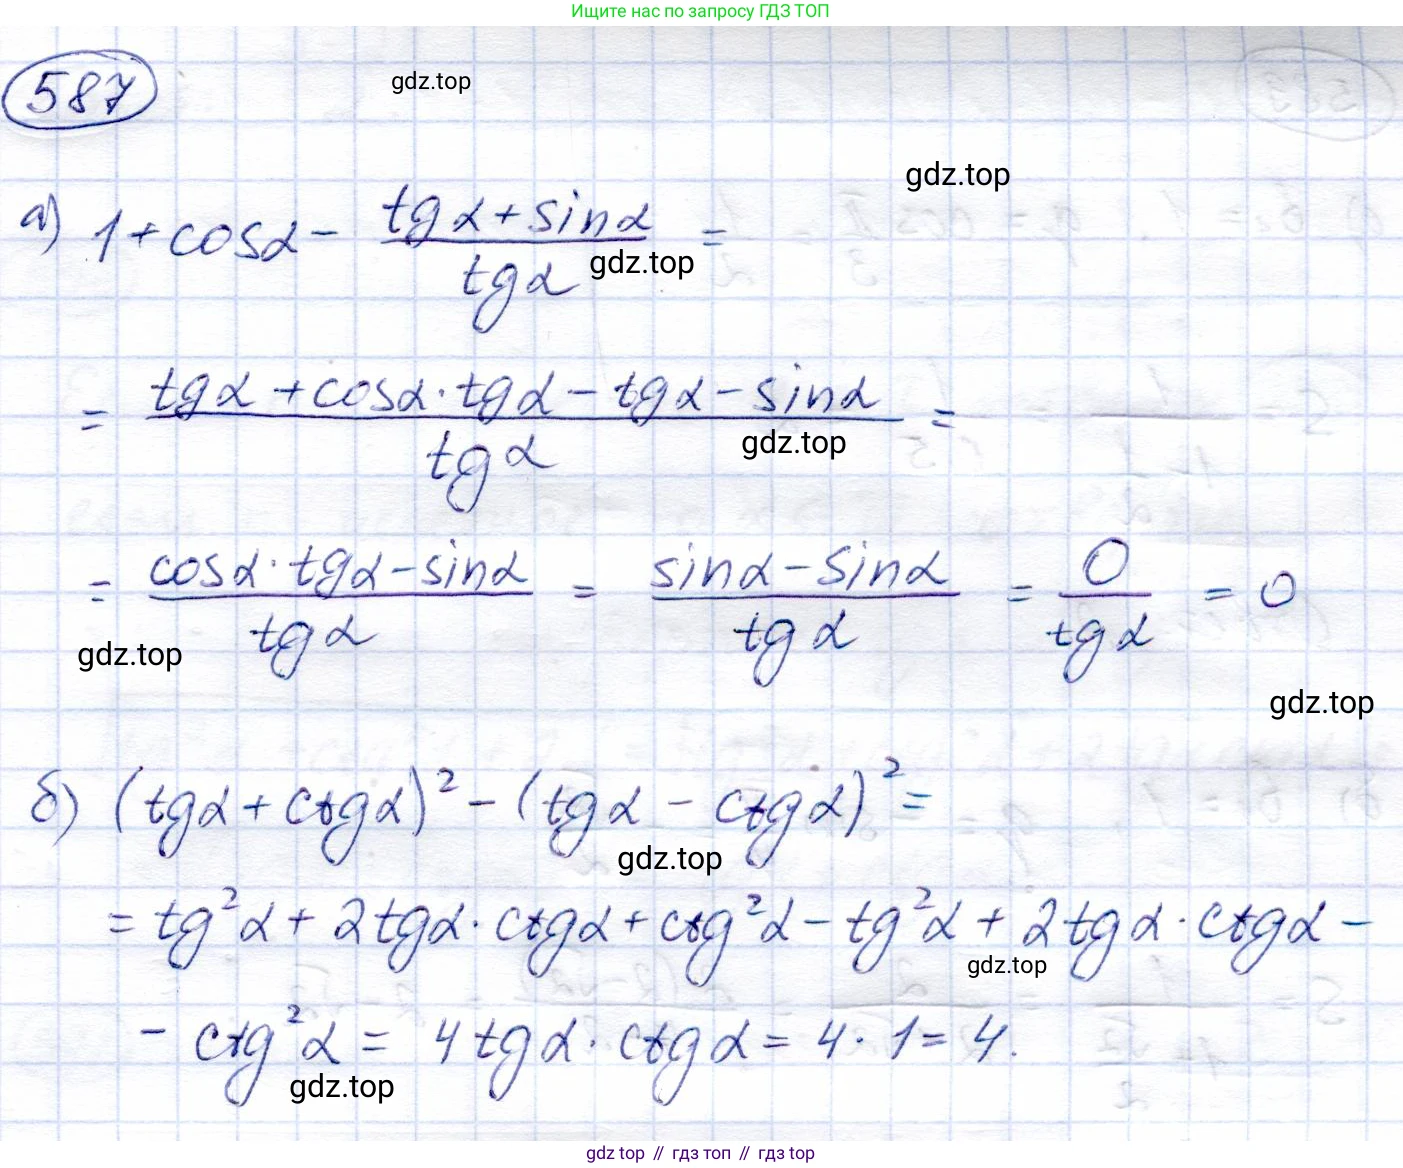 Ищите нас по запросу ГДЗ ТОП
587
gdz.top
gdz.top
а) 1 + cosα − (tgα + sinα)/tgα =
gdz.top
= (tgα + cosα · tgα − tgα − sinα)/tgα =
gdz.top
= (cosα · tgα − sinα)/tgα = (sinα − sinα)/tgα = 0/tgα = 0
gdz.top
gdz.top
б) (tgα + ctgα)² − (tgα − ctgα)² =
gdz.top
= tg²α + 2tgα · ctgα + ctg²α − tg²α + 2tgα · ctgα −
gdz.top
− ctg²α = 4tgα · ctgα = 4 · 1 = 4.
gdz.top
gdz top // гдз топ // гдз top